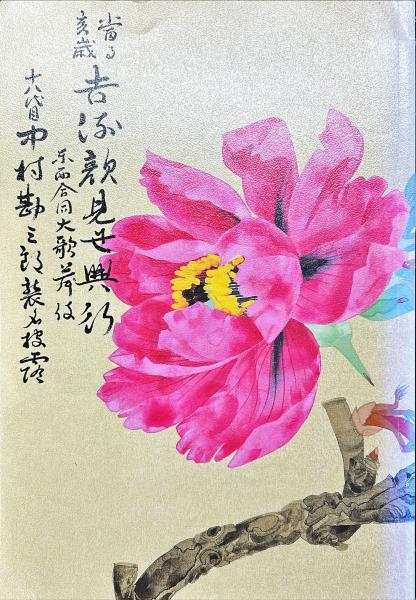 當る
亥歳
吉例顔見世興行
東西合同大歌舞伎
十八代目中村勘三郎襲名披露